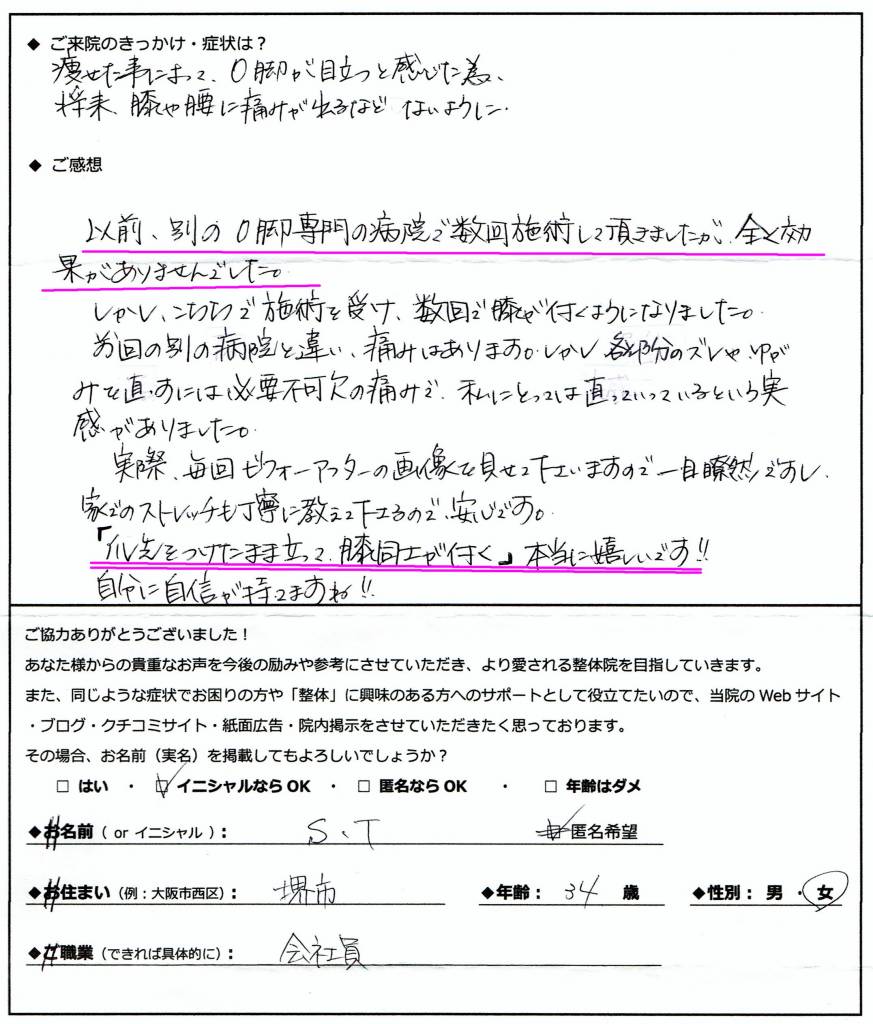 ◆ ご来院のきっかけ・症状は？
痩せた事によって、O脚が目立つと感じた為、
将来、膝や腰に痛みが出るなど ないように.
◆ ご感想
以前、別の O脚専門の病院で数回施術して頂きましたが、全く効
果がありませんでした。
しかし、こちらで施術を受け、数回で膝が付くようになりました。
前回の別の病院と違い、痛みはあります。しかし 各部分のズレや、ゆが
みを直すには必要不可欠の痛みで、私にとっては直っていっているという実
感がありました。
実際、毎回ビフォーアフターの画像を見せて下さいますので一目瞭然ですし、
家でのストレッチも丁寧に教えて下さるので、安心です。
「爪先をつけたまま立って、膝同士が付く」本当に嬉しいです!!
自分に自信が持てますね!!
ご協力ありがとうございました！
あなた様からの貴重なお声を今後の励みや参考にさせていただき、より愛される整体院を目指していきます。
また、同じような症状でお困りの方や「整体」に興味のある方へのサポートとして役立てたいので、当院の Web サイト
・ブログ・クチコミサイト・紙面広告・院内掲示をさせていただきたく思っております。
その場合、お名前（実名）を掲載してもよろしいでしょうか？
□ はい ・ ☑ イニシャルなら OK ・ □ 匿名なら OK ・ □ 年齢はダメ
◆お名前（ or イニシャル ）： S.T ☑匿名希望
◆お住まい（例：大阪市西区）： 堺市 ◆年齢： 34 歳 ◆性別： 男 ・ 女
◆ご職業（できれば具体的に）： 会社員